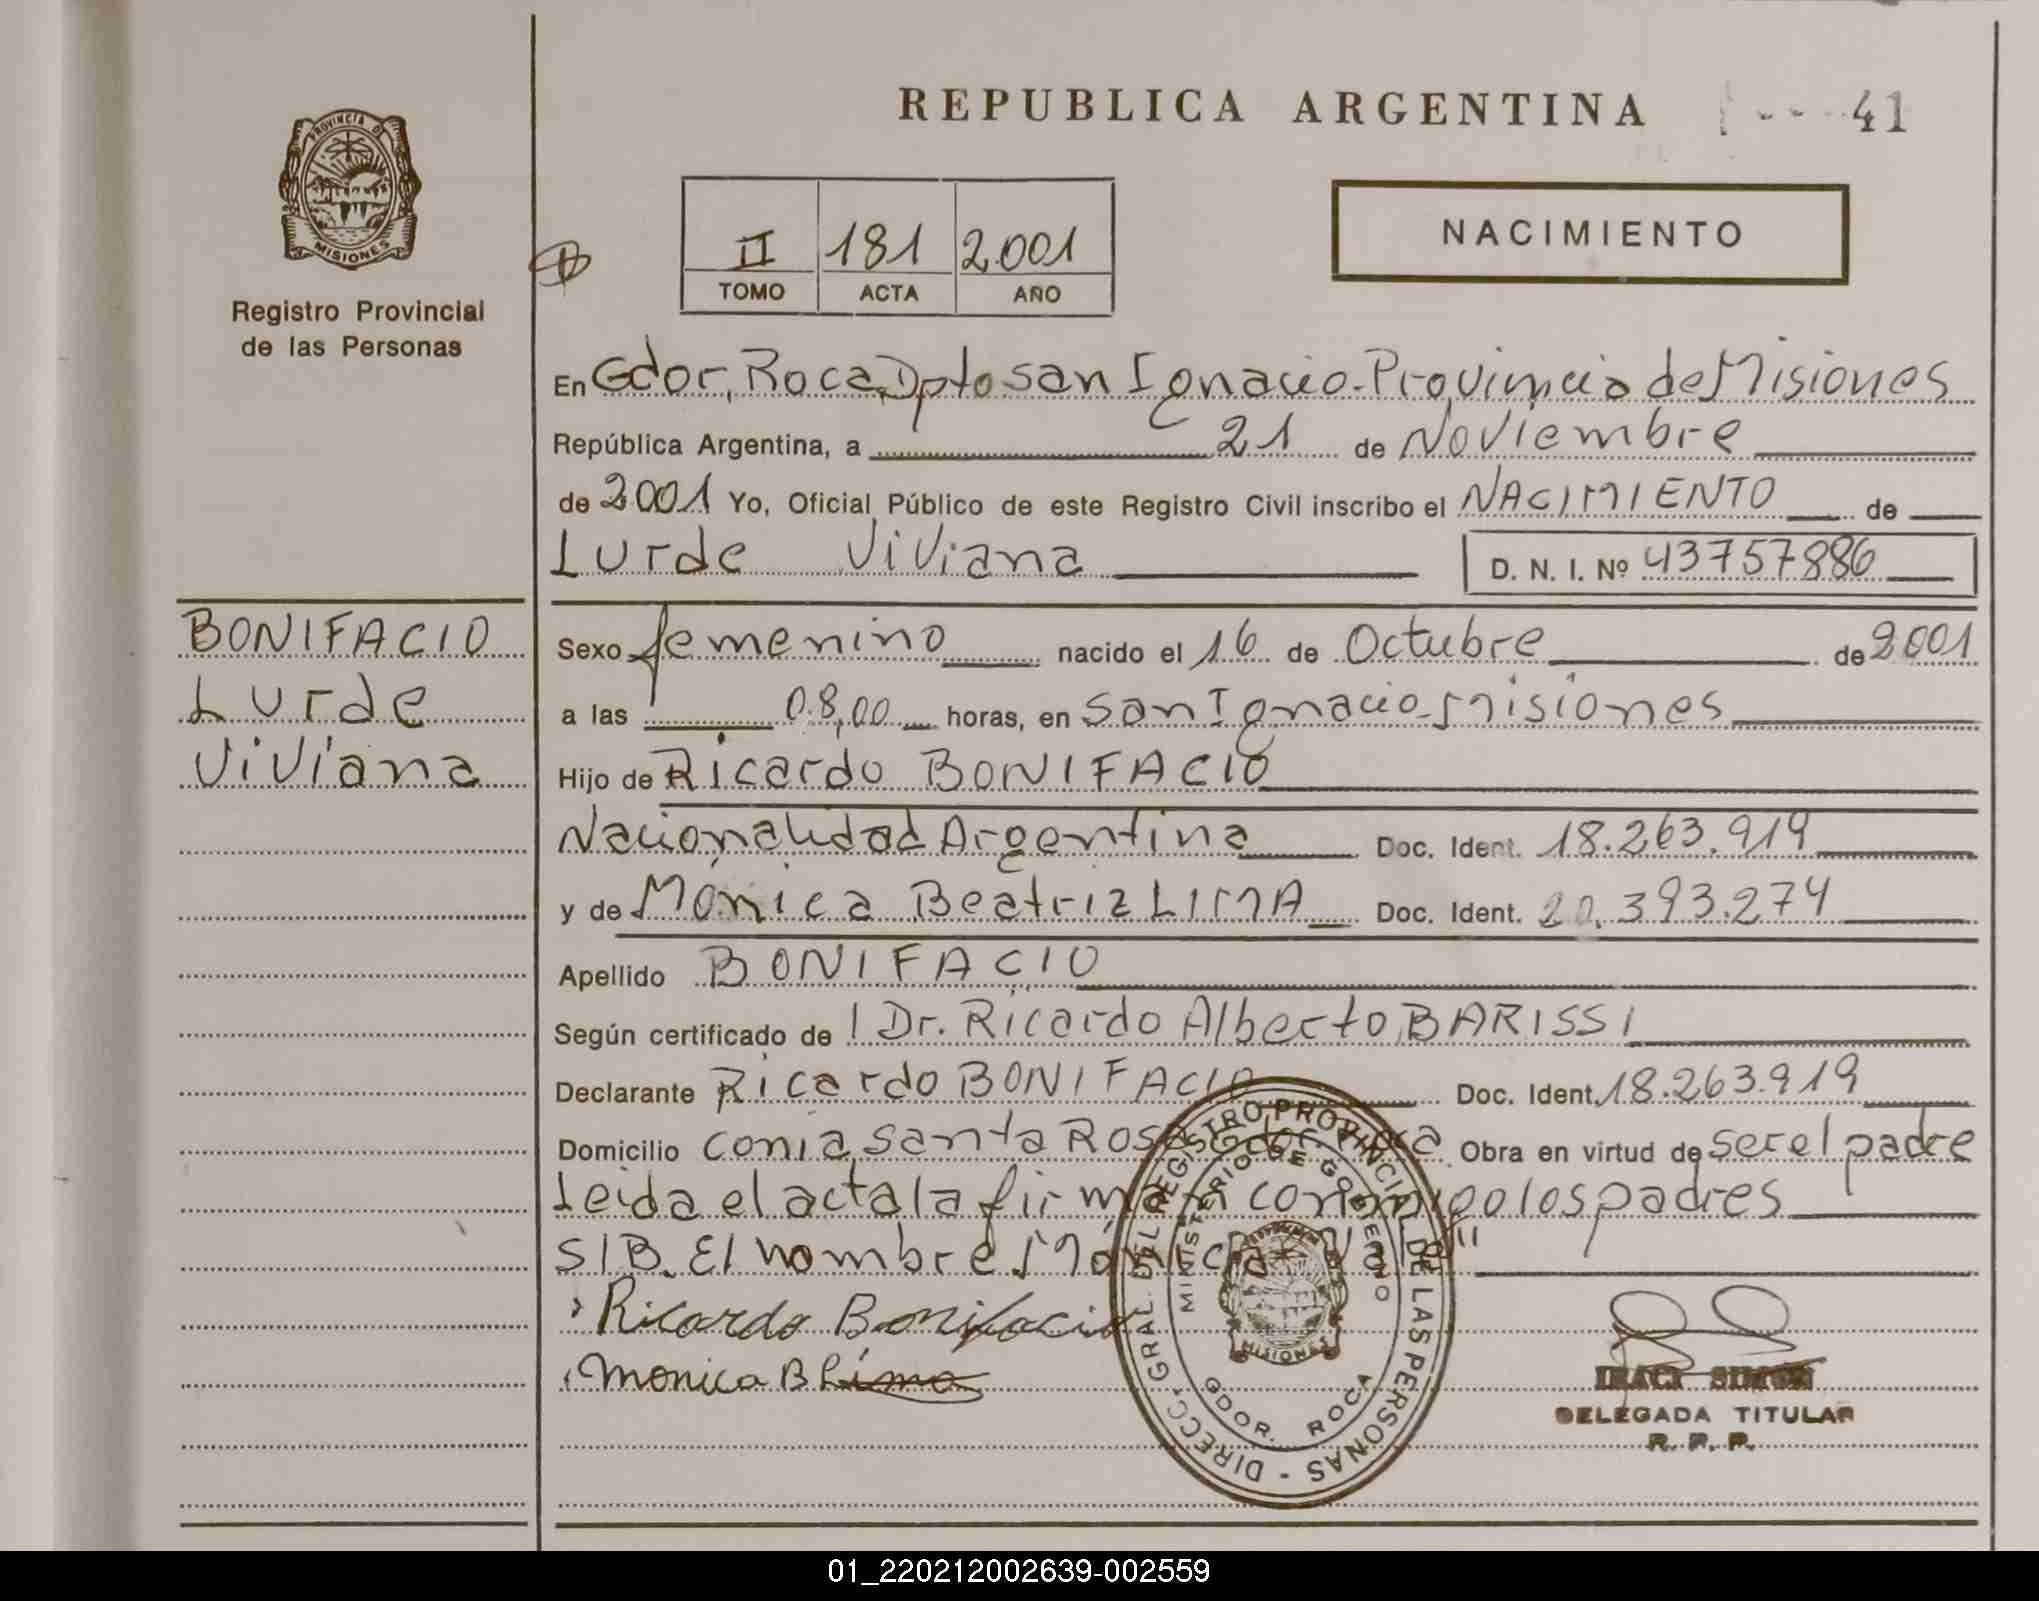 REPUBLICA ARGENTINA
41
PROVINCIA DE
MISIONES
Registro Provincial
de las Personas
II 181 2.001
TOMO ACTA AÑO
NACIMIENTO
En Gdor, Roca, Dpto san Ignacio - Provincia de Misiones
República Argentina, a 21 de Noviembre
de 2001 Yo, Oficial Público de este Registro Civil inscribo el NACIMIENTO de
Lurde Viviana D. N. I. Nº 43757886
BONIFACIO
Lurde
Viviana
Sexo femenino nacido el 16 de Octubre de 2001
a las 08,00 horas, en San Ignacio - Misiones
Hijo de Ricardo BONIFACIO
Nacionalidad Argentina Doc. Ident. 18.263.919
y de Mónica Beatriz LIMA Doc. Ident. 20.393.274
Apellido BONIFACIO
Según certificado de Dr. Ricardo Alberto BARISSI
Declarante Ricardo BONIFACIO Doc. Ident. 18.263.919
Domicilio conia Santa Rosa Gdor. Roca Obra en virtud de ser el padre
Leida el acta la firman conmigo los padres
S/B. El nombre Mónica "Vale"
Ricardo Bonifacio
Monica B Lima
DIRECC. GRAL. DEL REGISTRO PROVINCIAL DE LAS PERSONAS -
MINISTERIO DE GOBIERNO
MISIONES
GDOR. ROCA
IRACI SIMON
DELEGADA TITULAR
R. P. P.
01_220212002639-002559